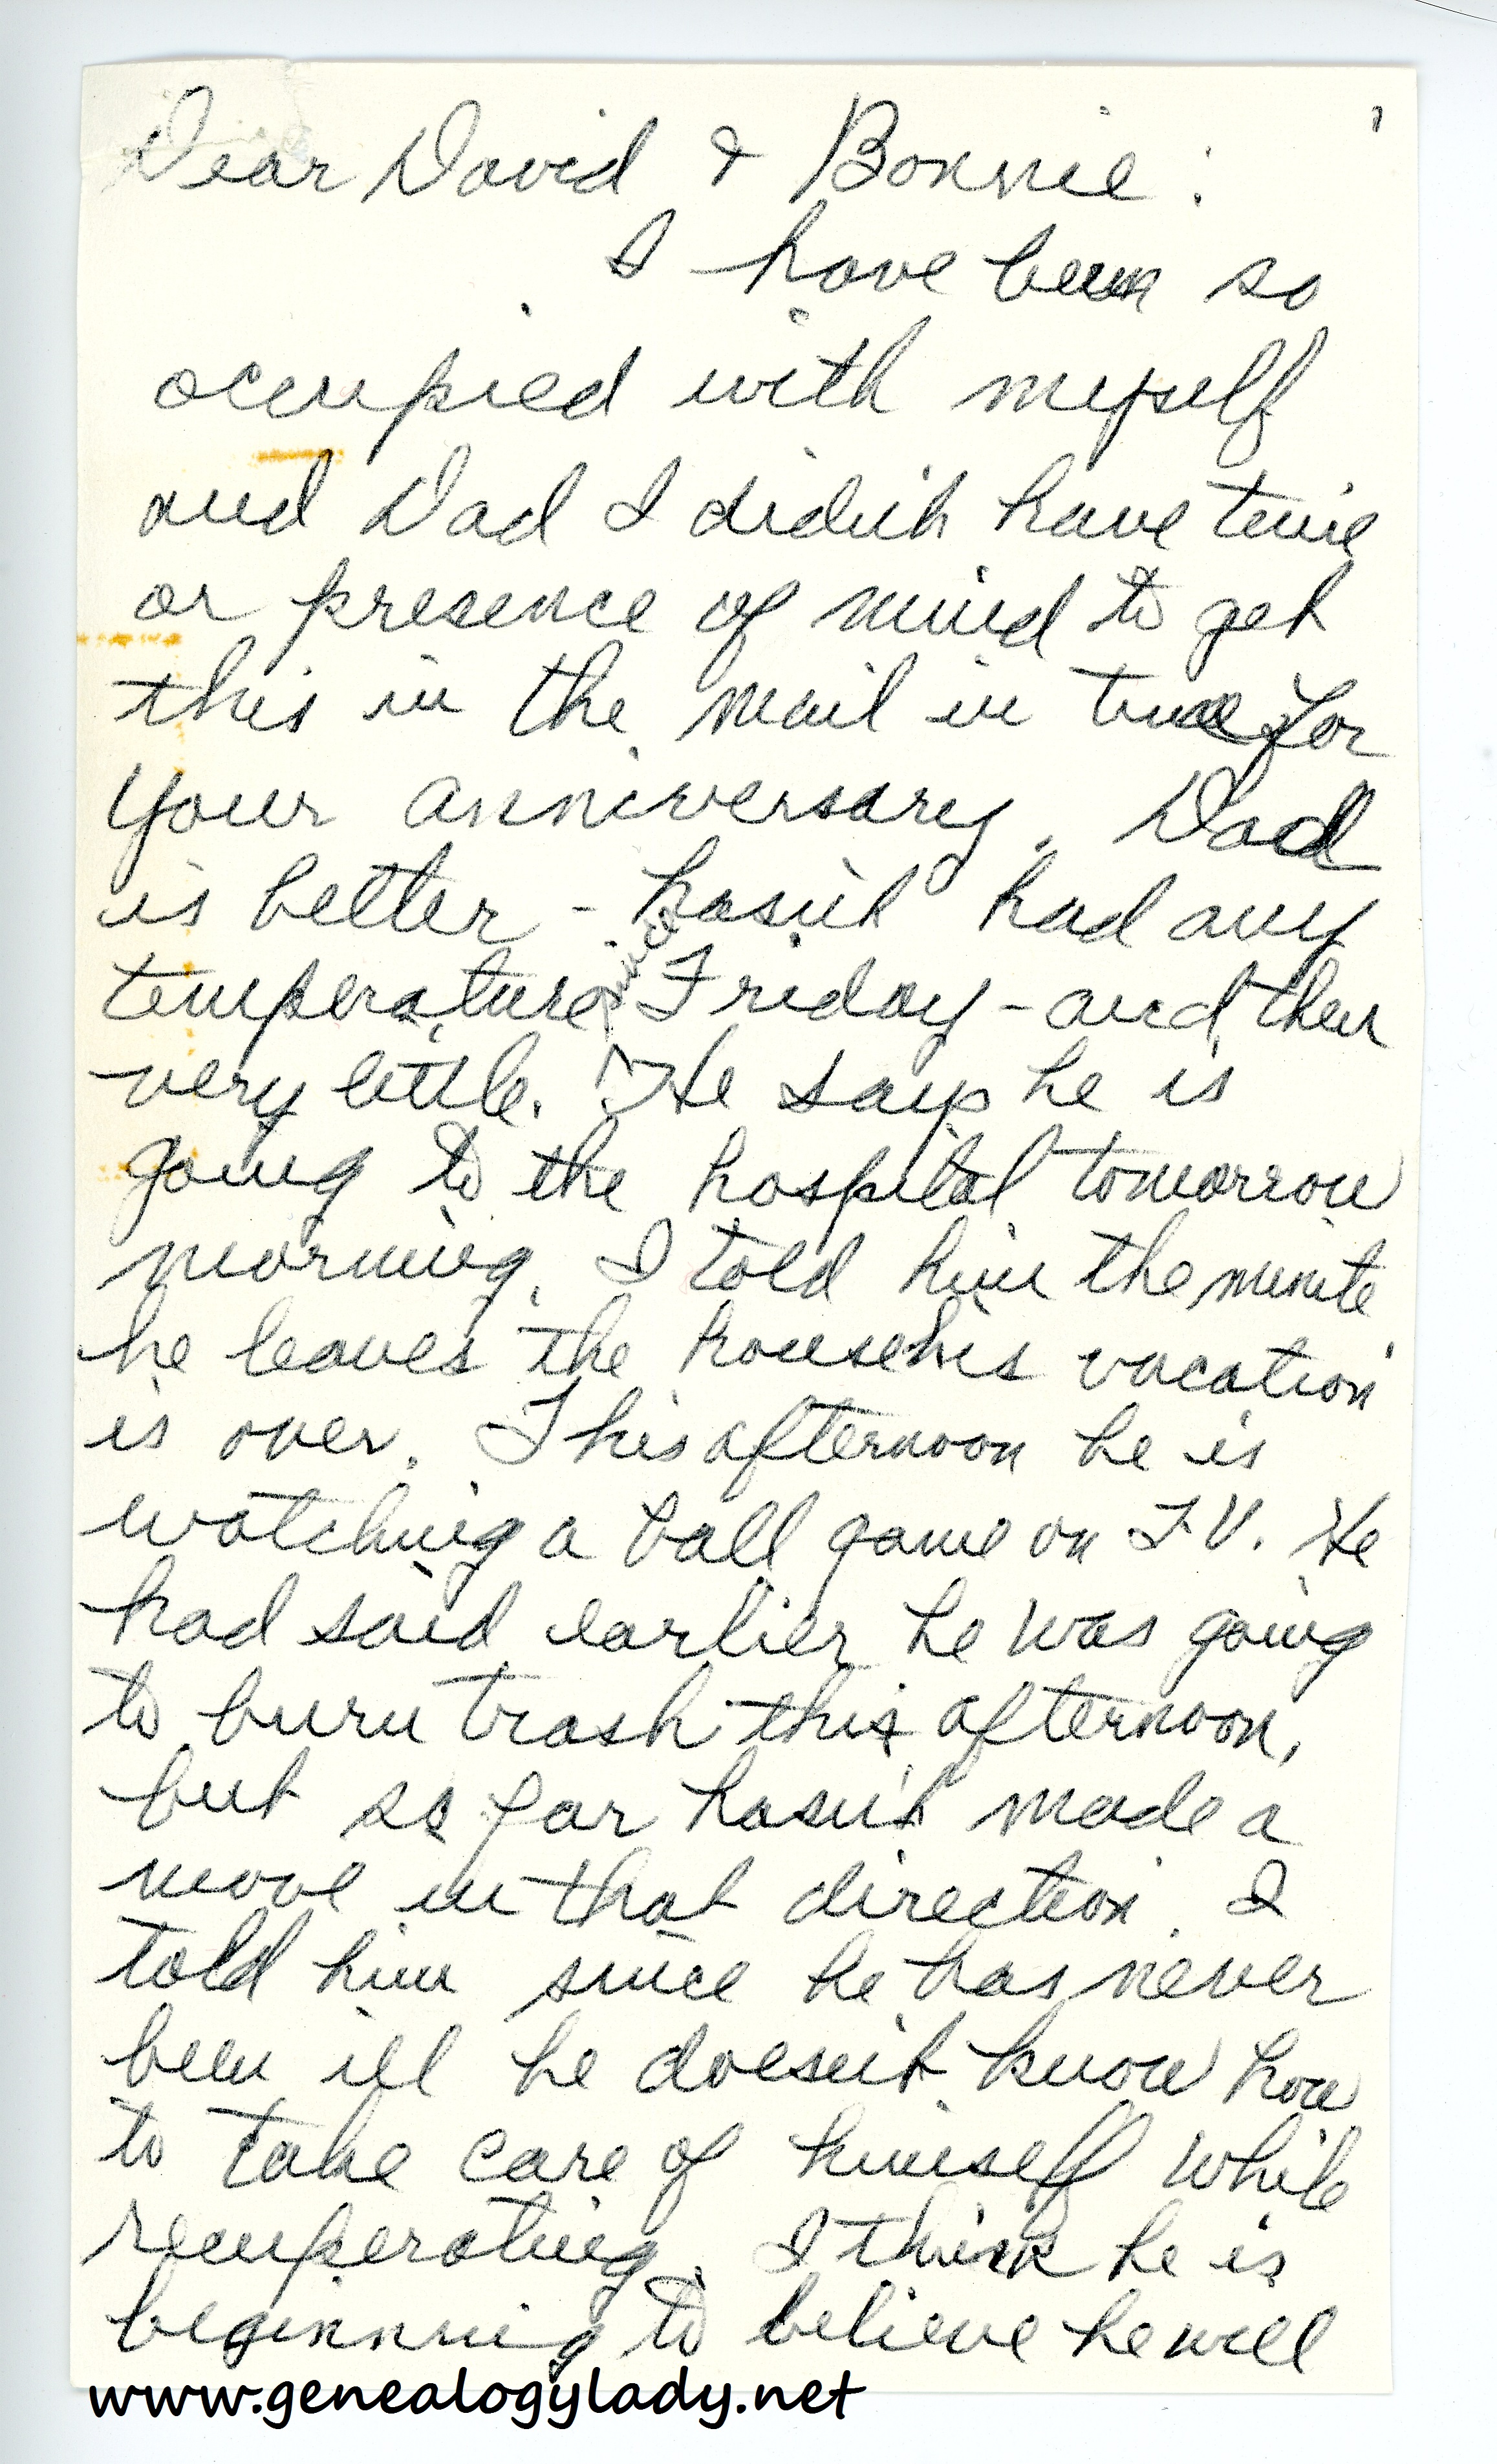 Dear David & Bonnie:
I have been so
occupied with myself
and Dad I didn't have time
or presence of mind to get
this in the mail in time for
your anniversary. Dad
is better - hasn't had any
temperature since Friday - and then
very little. He says he is
going to the hospital tomorrow
morning. I told him the minute
he leaves the house his vacation
is over. This afternoon he is
watching a ball game on T.V. He
had said earlier he was going
to burn trash this afternoon,
but so far hasn't made a
move in that direction. I
told him since he has never
been ill he doesn't know how
to take care of himself while
recuperating. I think he is
beginning to believe he will
www.genealogylady.net